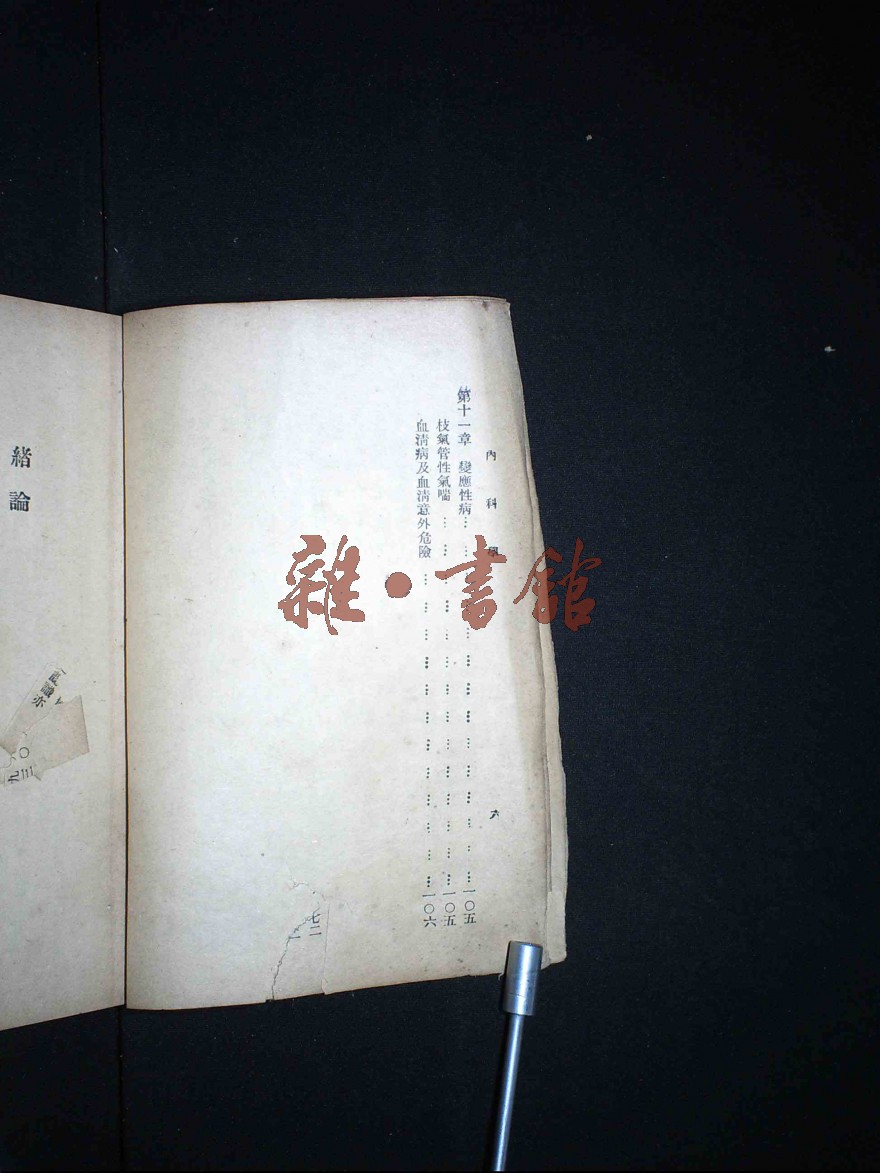 內科學
六
第十一章　變應性病……一〇五
枝氣管性氣喘……一〇五
血淸病及血淸意外危險……一〇六
七二
緒論
雜·書館